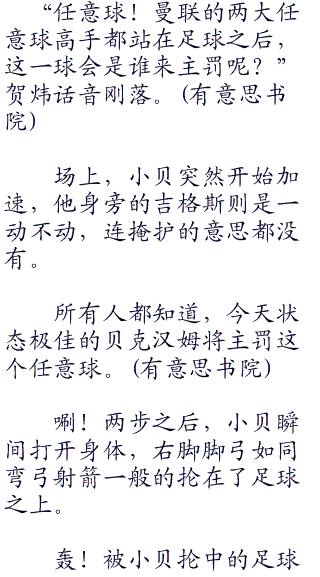 “任意球！曼联的两大任
意球高手都站在足球之后，
这一球会是谁来主罚呢？”
贺炜话音刚落。（有意思书
院）
场上，小贝突然开始加
速，他身旁的吉格斯则是一
动不动，连掩护的意思都没
有。
所有人都知道，今天状
态极佳的贝克汉姆将主罚这
个任意球。（有意思书院）
唰！两步之后，小贝瞬
间打开身体，右脚脚弓如同
弯弓射箭一般的抡在了足球
之上。
轰！被小贝抡中的足球